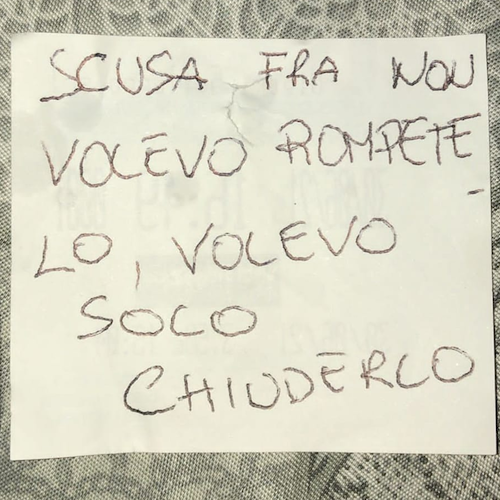 SCUSA FRA NON
VOLEVO ROMPETE
-
LO, VOLEVO
SOLO
CHIUDERLO